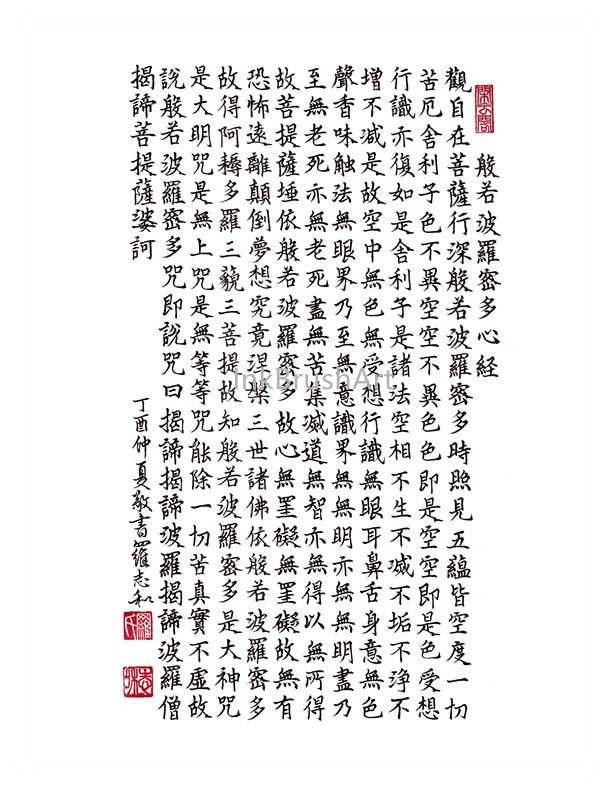 般若波羅密多心経
觀自在菩薩行深般若波羅密多時照見五蘊皆空度一切
苦厄舍利子色不異空空不異色色即是空空即是色受想
行識亦復如是舍利子是諸法空相不生不滅不垢不淨不
增不減是故空中無色無受想行識無眼耳鼻舌身意無色
聲香味触法無眼界乃至無意識界無無明亦無無明盡乃
至無老死亦無老死盡無苦集滅道無智亦無得以無所得
故菩提薩埵依般若波羅密多故心無罣礙無罣礙故無有
恐怖遠離顛倒夢想究竟涅槃三世諸佛依般若波羅密多
故得阿耨多羅三藐三菩提故知般若波羅密多是大神咒
是大明咒是無上咒是無等等咒能除一切苦真實不虛故
說般若波羅密多咒即說咒曰揭諦揭諦波羅揭諦波羅僧
揭諦菩提薩婆訶
丁酉仲夏敬書羅志和
InkBrushArt